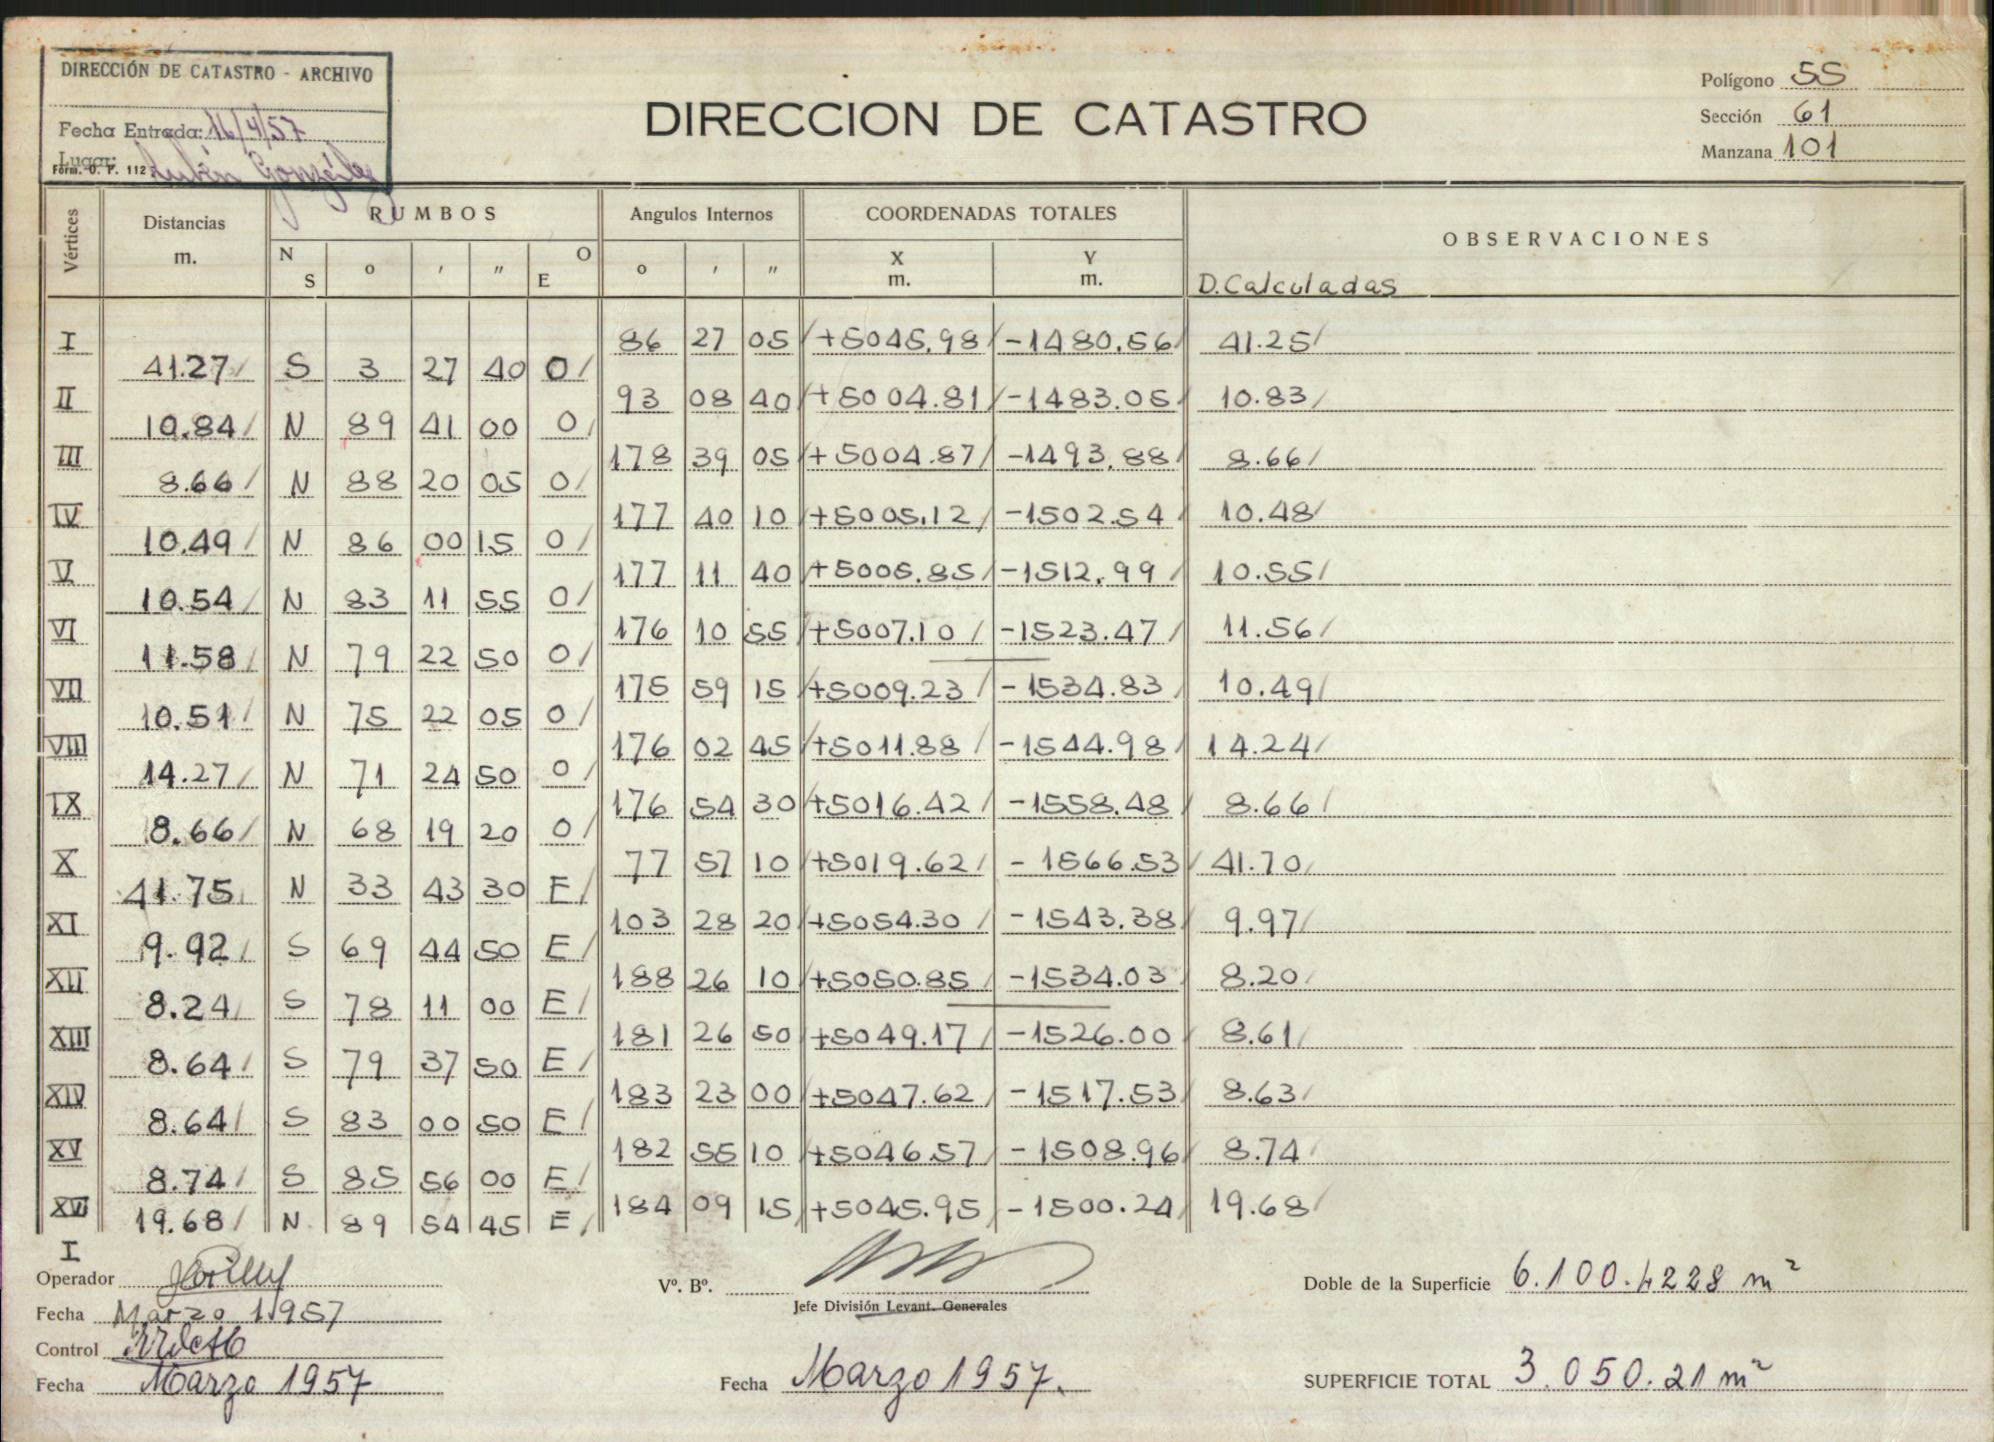 DIRECCIÓN DE CATASTRO - ARCHIVO
Fecha Entrada: 16/4/57
Lugar:
Form. O. P. 112
Rubén González
DIRECCION DE CATASTRO
Polígono 55
Sección 61
Manzana 101
Vértices Distancias m. RUMBOS Angulos Internos COORDENADAS TOTALES OBSERVACIONES
N S o ′ ″ O E o ′ ″ X m. Y m. D. Calculadas
I 86 27 05 +5045.98 -1480.56 41.25
41.27 S 3 27 40 O
II 93 08 40 +5004.81 -1483.05 10.83
10.84 N 89 41 00 O
III 178 39 05 +5004.87 -1493.88 8.66
8.66 N 88 20 05 O
IV 177 40 10 +5005.12 -1502.54 10.48
10.49 N 86 00 15 O
V 177 11 40 +5005.85 -1512.99 10.55
10.54 N 83 11 55 O
VI 176 10 55 +5007.10 -1523.47 11.56
11.58 N 79 22 50 O
VII 175 59 15 +5009.23 -1534.83 10.49
10.51 N 75 22 05 O
VIII 176 02 45 +5011.88 -1544.98 14.24
14.27 N 71 24 50 O
IX 176 54 30 +5016.42 -1558.48 8.66
8.66 N 68 19 20 O
X 77 57 10 +5019.62 -1566.53 41.70
41.75 N 33 43 30 E
XI 103 28 20 +5054.30 -1543.38 9.97
9.92 S 69 44 50 E
XII 188 26 10 +5050.85 -1534.03 8.20
8.24 S 78 11 00 E
XIII 181 26 50 +5049.17 -1526.00 8.61
8.64 S 79 37 50 E
XIV 183 23 00 +5047.62 -1517.53 8.63
8.64 S 83 00 50 E
XV 182 55 10 +5046.57 -1508.96 8.74
8.74 S 85 56 00 E
XVI 184 09 15 +5045.95 -1500.24 19.68
19.68 N 89 54 45 E
I
Operador
Fecha Marzo 1957
Control
Fecha Marzo 1957
Vº. Bº.
Jefe División Levant. Generales
Fecha Marzo 1957.
Doble de la Superficie 6.100.4228 m²
SUPERFICIE TOTAL 3.050.21 m²